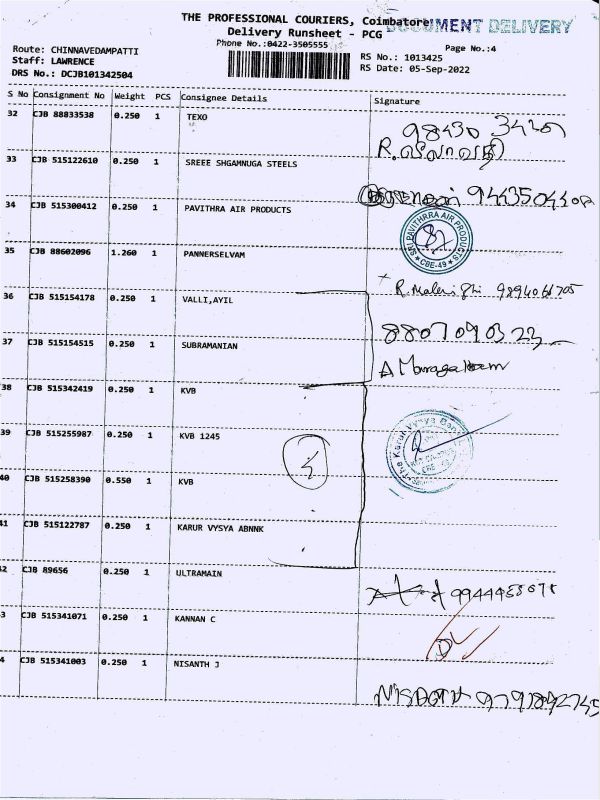 THE PROFESSIONAL COURIERS, Coimbatore
DOCUMENT DELIVERY
Delivery Runsheet - PCG
Phone No.:0422-3505555
Page No.:4
Route: CHINNAVEDAMPATTI
RS No.: 1013425
Staff: LAWRENCE
RS Date: 05-Sep-2022
DRS No.: DCJB101342504
S No Consignment No Weight PCS Consignee Details Signature
32 CJB 88833538 0.250 1 TEXO
R.
33 CJB 515122610 0.250 1 SREEE SHGAMNUGA STEELS
34 CJB 515300412 0.250 1 PAVITHRA AIR PRODUCTS
SRI PAVITHRRA AIR PRODUCTS
* CBE-49 *
35 CJB 88602096 1.260 1 PANNERSELVAM
36 CJB 515154178 0.250 1 VALLI,AYIL
8807090323
37 CJB 515154515 0.250 1 SUBRAMANIAN
38 CJB 515342419 0.250 1 KVB
The Karur Vysya Bank
39 CJB 515255987 0.250 1 KVB 1245
40 CJB 515258390 0.550 1 KVB
41 CJB 515122787 0.250 1 KARUR VYSYA ABNNK
42 CJB 89656 0.250 1 ULTRAMAIN
3 CJB 515341071 0.250 1 KANNAN C
4 CJB 515341003 0.250 1 NISANTH J